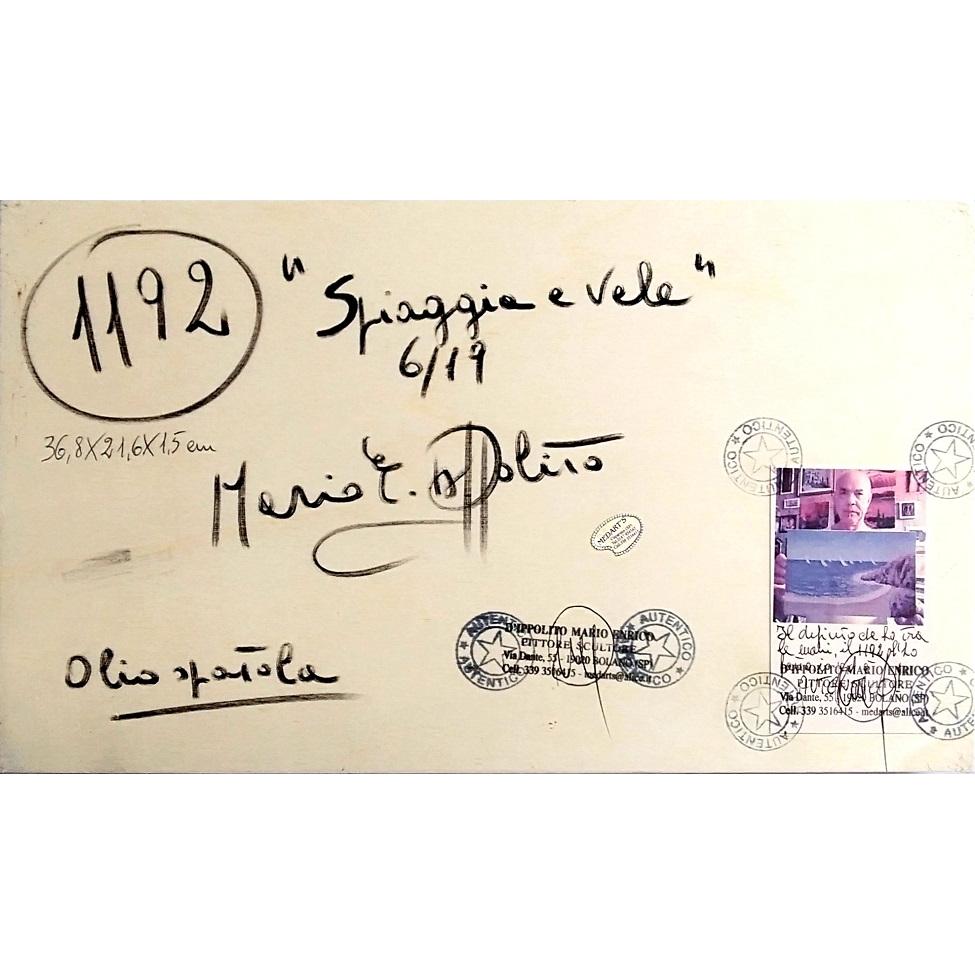 1192
"Spiaggia e Vele"
6/19
36,8X21,6X1,5 cm
Mario E. D'Ippolito
MEDART'S
Olio spatola
AUTENTICO
AUTENTICO
D'IPPOLITO MARIO ENRICO
PITTORE SCULTORE
Via Dante, 55 - 19020 BOLANO (SP)
Cell. 339 3516415 - medarts@alice.it
AUTENTICO
AUTENTICO
AUTENTICO
AUTENTICO
Il dipinto che ho tra
le mani, il 1192
D'IPPOLITO MARIO ENRICO
PITTORE SCULTORE
Via Dante, 55 - 19020 BOLANO (SP)
Cell. 339 3516415 - medarts@alice.it
AUTENTICO
AUTENTICO